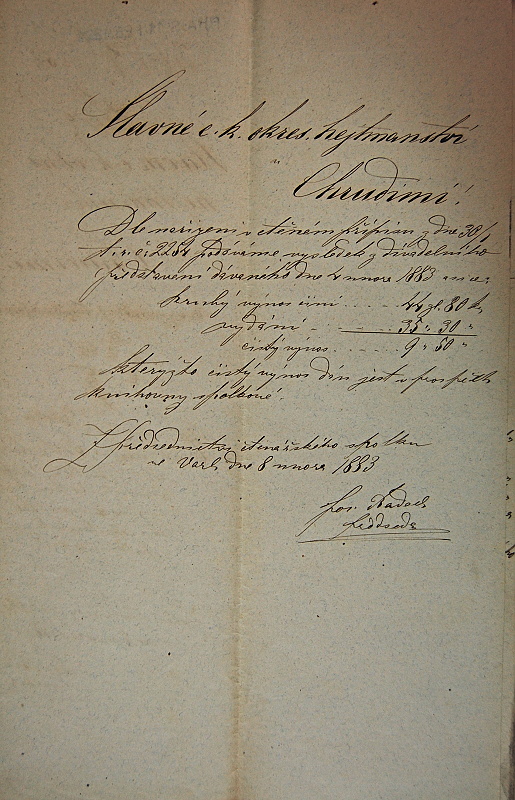 Slavné c. k. okres. hejtmanství
v
Chrudimi!
Dle nařízení v ctěném přípisu z dne 30/1
t. r. č. 2284 podáváme výsledek z divadelního
představení dávaného dne 4 února 1883 a sice:
hrubý výnos činí . . . . 44 zl. 80 kr
vydání . . 35 „ 30 „
čistý výnos . . . . . 9 „ 50 „
kterýžto čistý výnos dán jest v prospěch
knihovny spolkové.
Z předsednictví čtenářského spolku
ve dne 8 února 1883
Jos.
předseda